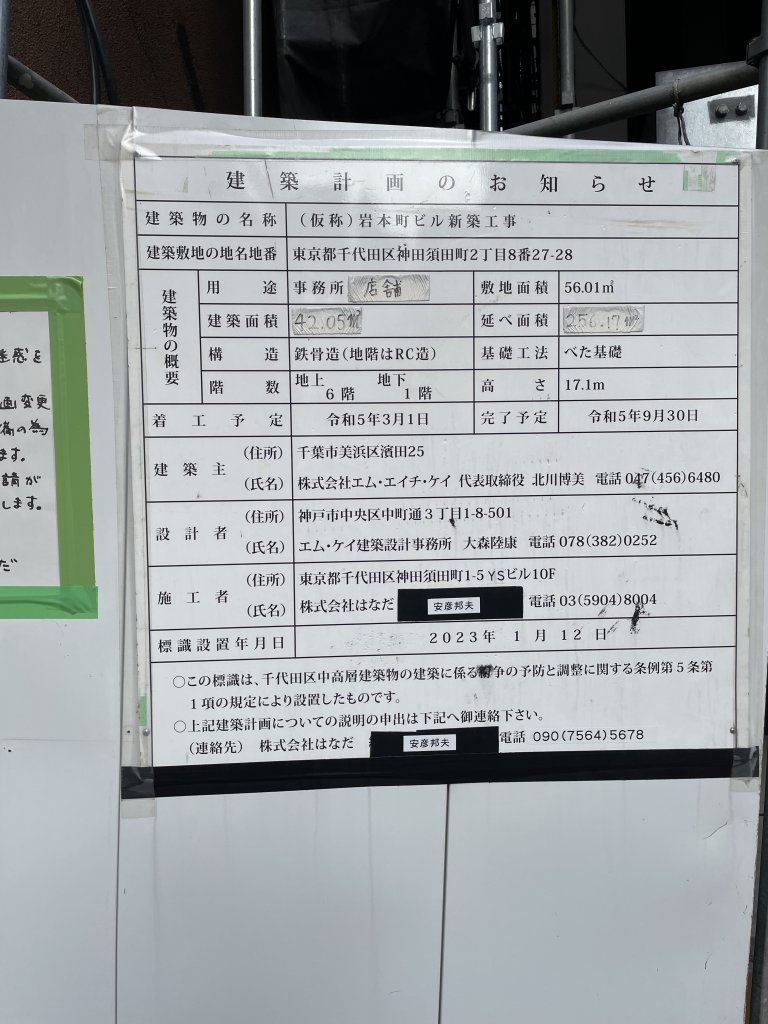 建築計画のお知らせ
建築物の名称 (仮称)岩本町ビル新築工事
建築敷地の地名地番 東京都千代田区神田須田町2丁目8番27-28
建築物の概要
用途 事務所 店舗 敷地面積 56.01㎡
建築面積 42.05㎡ 延べ面積 256.17㎡
構造 鉄骨造(地階はRC造) 基礎工法 べた基礎
階数 地上6階 地下1階 高さ 17.1m
着工予定 令和5年3月1日 完了予定 令和5年9月30日
建築主 (住所) 千葉市美浜区濱田25
(氏名) 株式会社エム・エイチ・ケイ 代表取締役 北川博美 電話 047(456)6480
設計者 (住所) 神戸市中央区中町通3丁目1-8-501
(氏名) エム・ケイ建築設計事務所 大森陸康 電話 078(382)0252
施工者 (住所) 東京都千代田区神田須田町1-5 YSビル10F
(氏名) 株式会社はなだ 安彦邦夫 電話 03(5904)8004
標識設置年月日 2023年 1月 12日
○この標識は、千代田区中高層建築物の建築に係る紛争の予防と調整に関する条例第5条第
1項の規定により設置したものです。
○上記建築計画についての説明の申出は下記へ御連絡下さい。
(連絡先) 株式会社はなだ 安彦邦夫 電話 090(7564)5678
惑を
変更
の為
ます。
請が
します。
だ